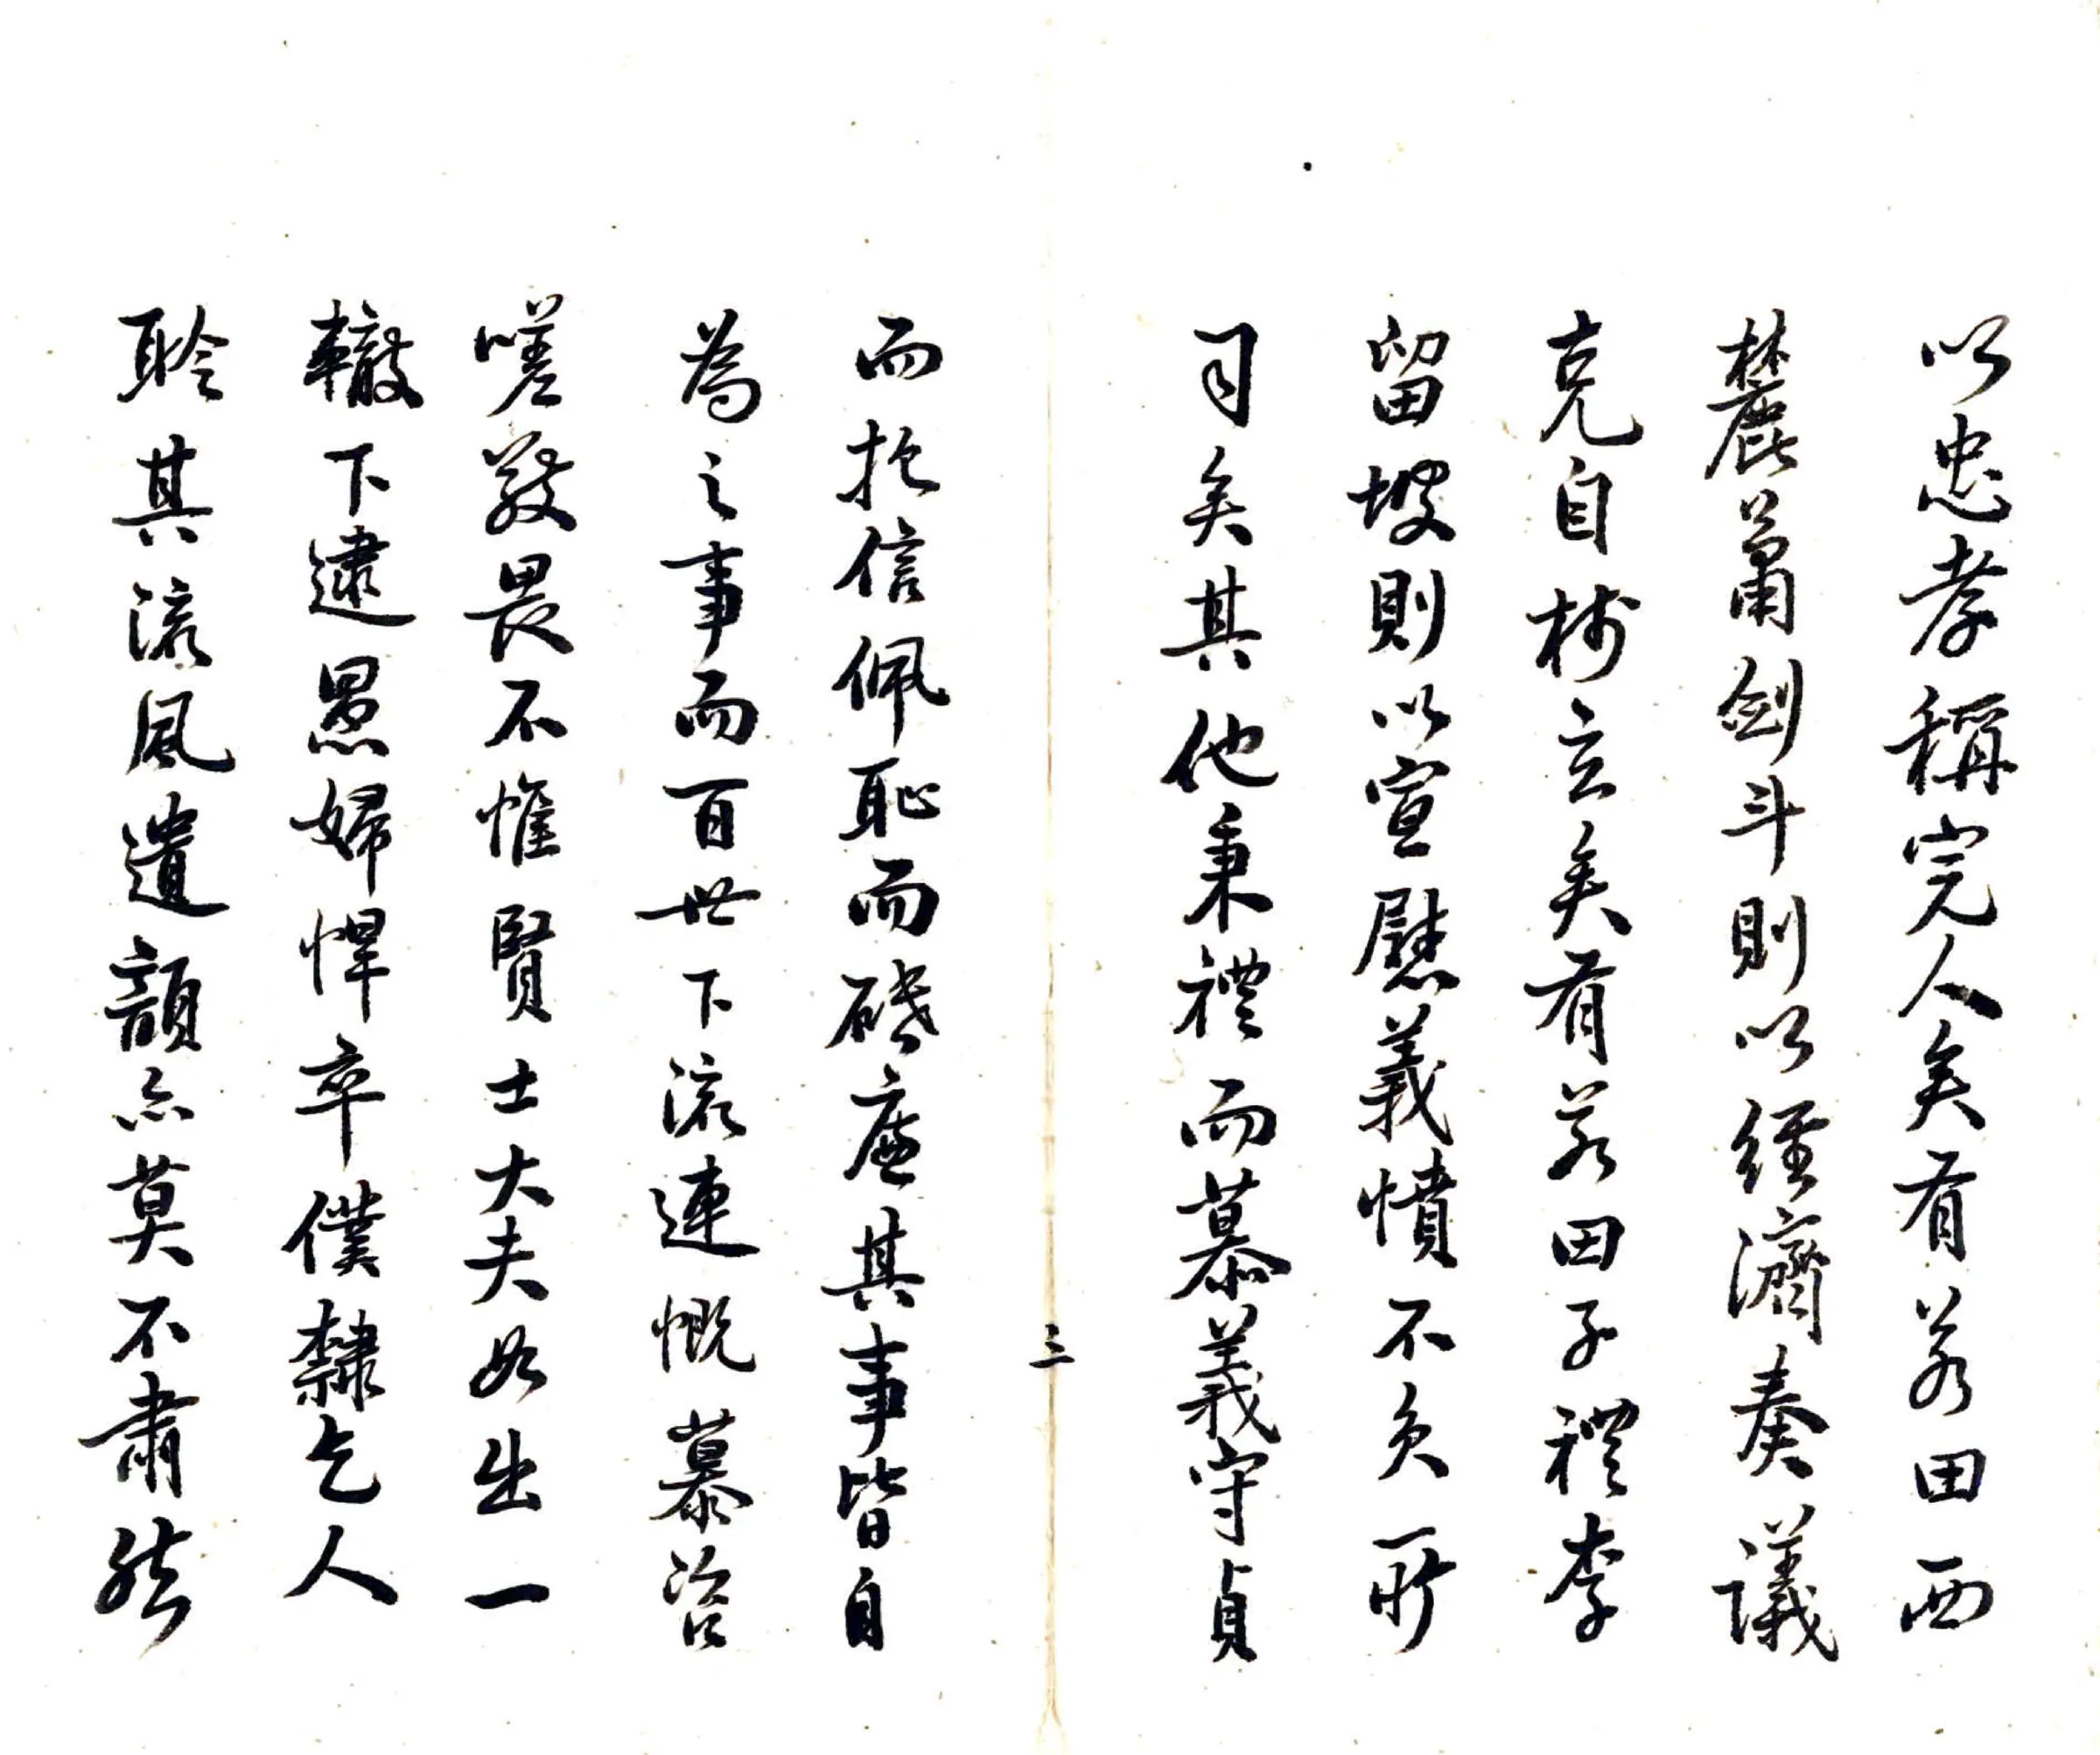 以忠孝稱完人矣有若田西
麓蕭劍斗則以經濟奏議
克自樹立矣有若田子禮李
留坡則以宣慰義憤不負所
司矣其他秉禮而慕義守貞
三
而抱信佩恥而砥廉其事皆自
為之事而百世下流連慨慕咨
嗟敬畏不惟賢士大夫如出一
轍下逮愚婦悍卒僕隸乞人
聆其流風遺韻亦莫不肅然